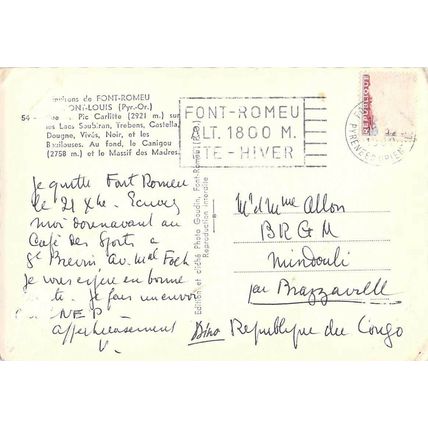 Environs de FONT-ROMEU
MONT-LOUIS (Pyr.-Or.)
54 - Pic Carlitte (2921 m.) sur
les Lacs Soubiran, Trebens, Castella,
Dougne, Vivès, Noir, et les
Bouillouses. Au fond, le Canigou
(2758 m.) et le Massif des Madres.
FONT-ROMEU
ALT. 1800 M.
ETE - HIVER
REPUBLIQUE
PYRENEES ORIENTALES
Edition et cliché Photo Gaudin, Font-Romeu (P.-O.)
Reproduction interdite
Je quitte Font Romeu
le 21 Xbre. Ecrivez
moi dorénavant au
Café des Sports à
St Brevin Av. Mal Foch
Je vous espère en bonne
Je fais un envoi
NEP
affectueusement
V.
M. et Mme Allon
BRGM
Mindouli
par Brazzaville
République du Congo